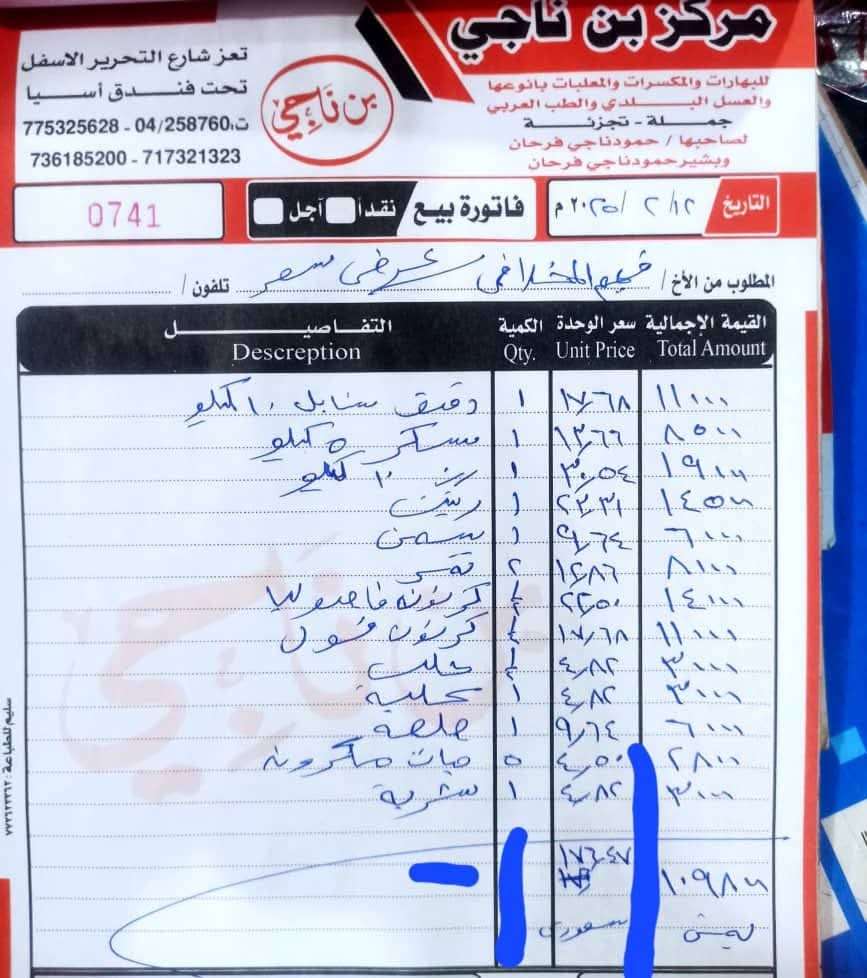 مركز بن ناجي
للبهارات والمكسرات والمعلبات بانوعها
والعسل البلدي والطب العربي
جملة - تجزئة
لصاحبها / حمود ناجي فرحان
وبشير حمود ناجي فرحان
بن ناجي
تعز شارع التحرير الاسفل
تحت فندق أسيا
ت: 04/258760 - 775325628
717321323 - 736185200
التاريخ ١٢/ ٢ /٢٠٢٥م
فاتورة بيع نقداً آجل
0741
المطلوب من الأخ / المخلافي عرض سعر تلفون /
القيمة الإجمالية سعر الوحدة الكمية التفاصيل
Total Amount Unit Price Qty. Descreption
١١٠٠٠ ١٧٫٦٨ ١ دقيق سنابل ١٠ كيلو
٨٥٠٠ ١٣٫٦٦ ١ سكر ٥ كيلو
١٩٠٠٠ ٣٠٫٥٤ ١ رز ١٠ كيلو
١٤٥٠٠ ٢٣٫٣١ ١ زيت
٦٠٠٠ ٩٫٦٤ ١ سمن
٨٠٠٠ ١٢٫٨٦ ٢ تمر
١٤٠٠٠ ٢٢٫٥٠ ½ كرتون فاصوليا
١١٠٠٠ ١٧٫٦٨ كرتون فول
٣٠٠٠ ٤٫٨٢ حليب
٣٠٠٠ ٤٫٨٢ ١
٦٠٠٠ ٩٫٦٤ ١ صلصة
٢٨٠٠ ٤٫٥٠ ٥ حبات مكرونه
٣٠٠٠ ٤٫٨٢ ١ شربة
١٠٩٨٠٠ ١٧٦٫٤٧
سعودي
سليم للطباعة : ٧٧٧٦٢٢٣٦٢